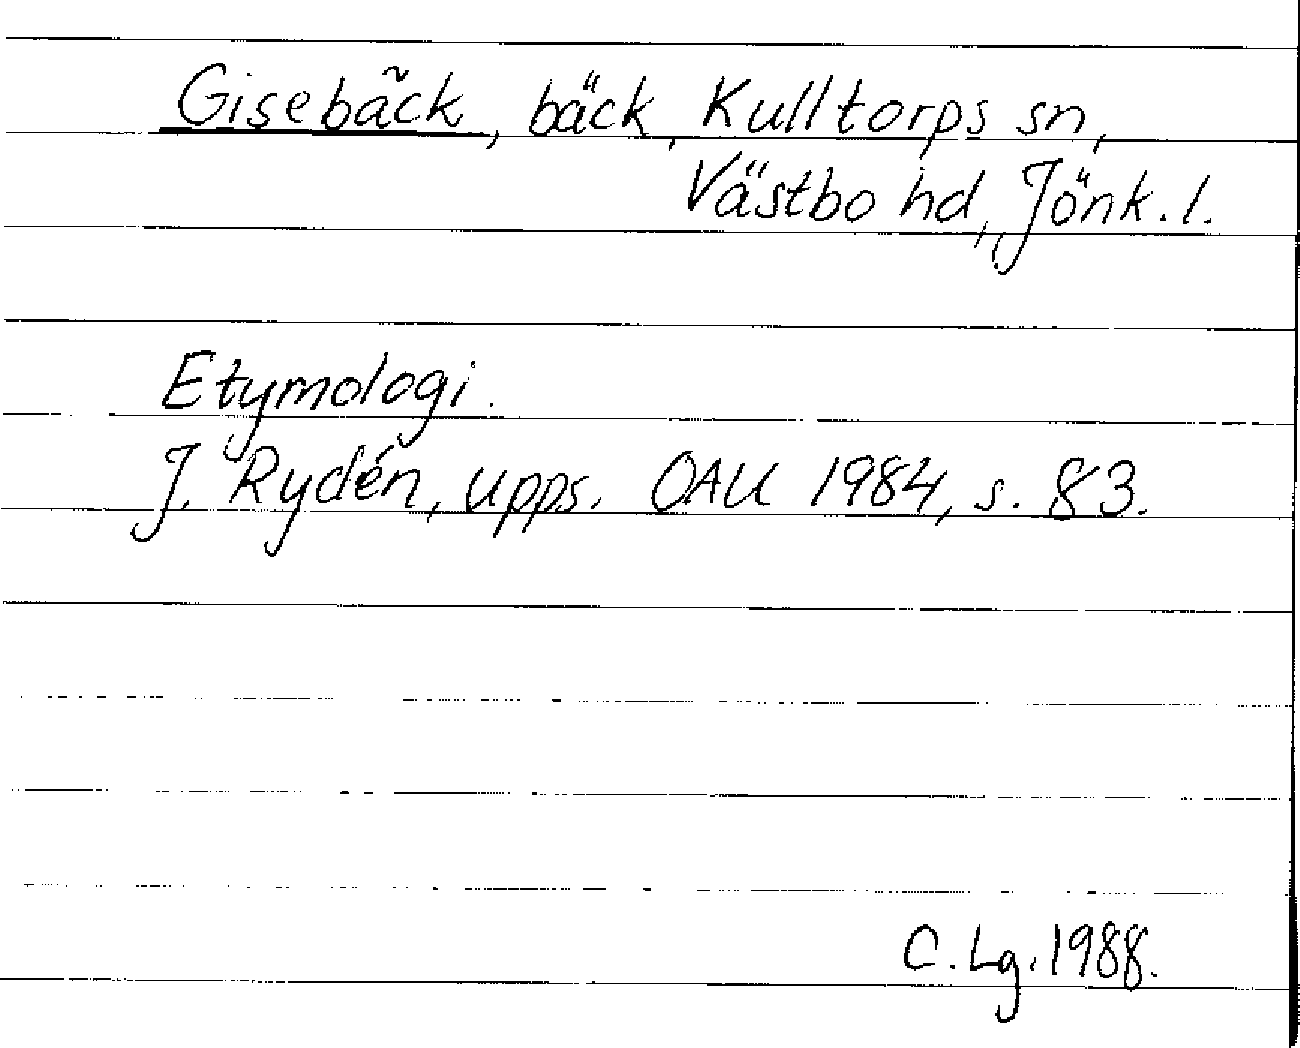 Gisebäck, bäck, Kulltorps sn,
Västbo hd, Jönk. l.
Etymologi.
J. Rydén, upps. OAU 1984, s. 83.
C. Lg. 1988.